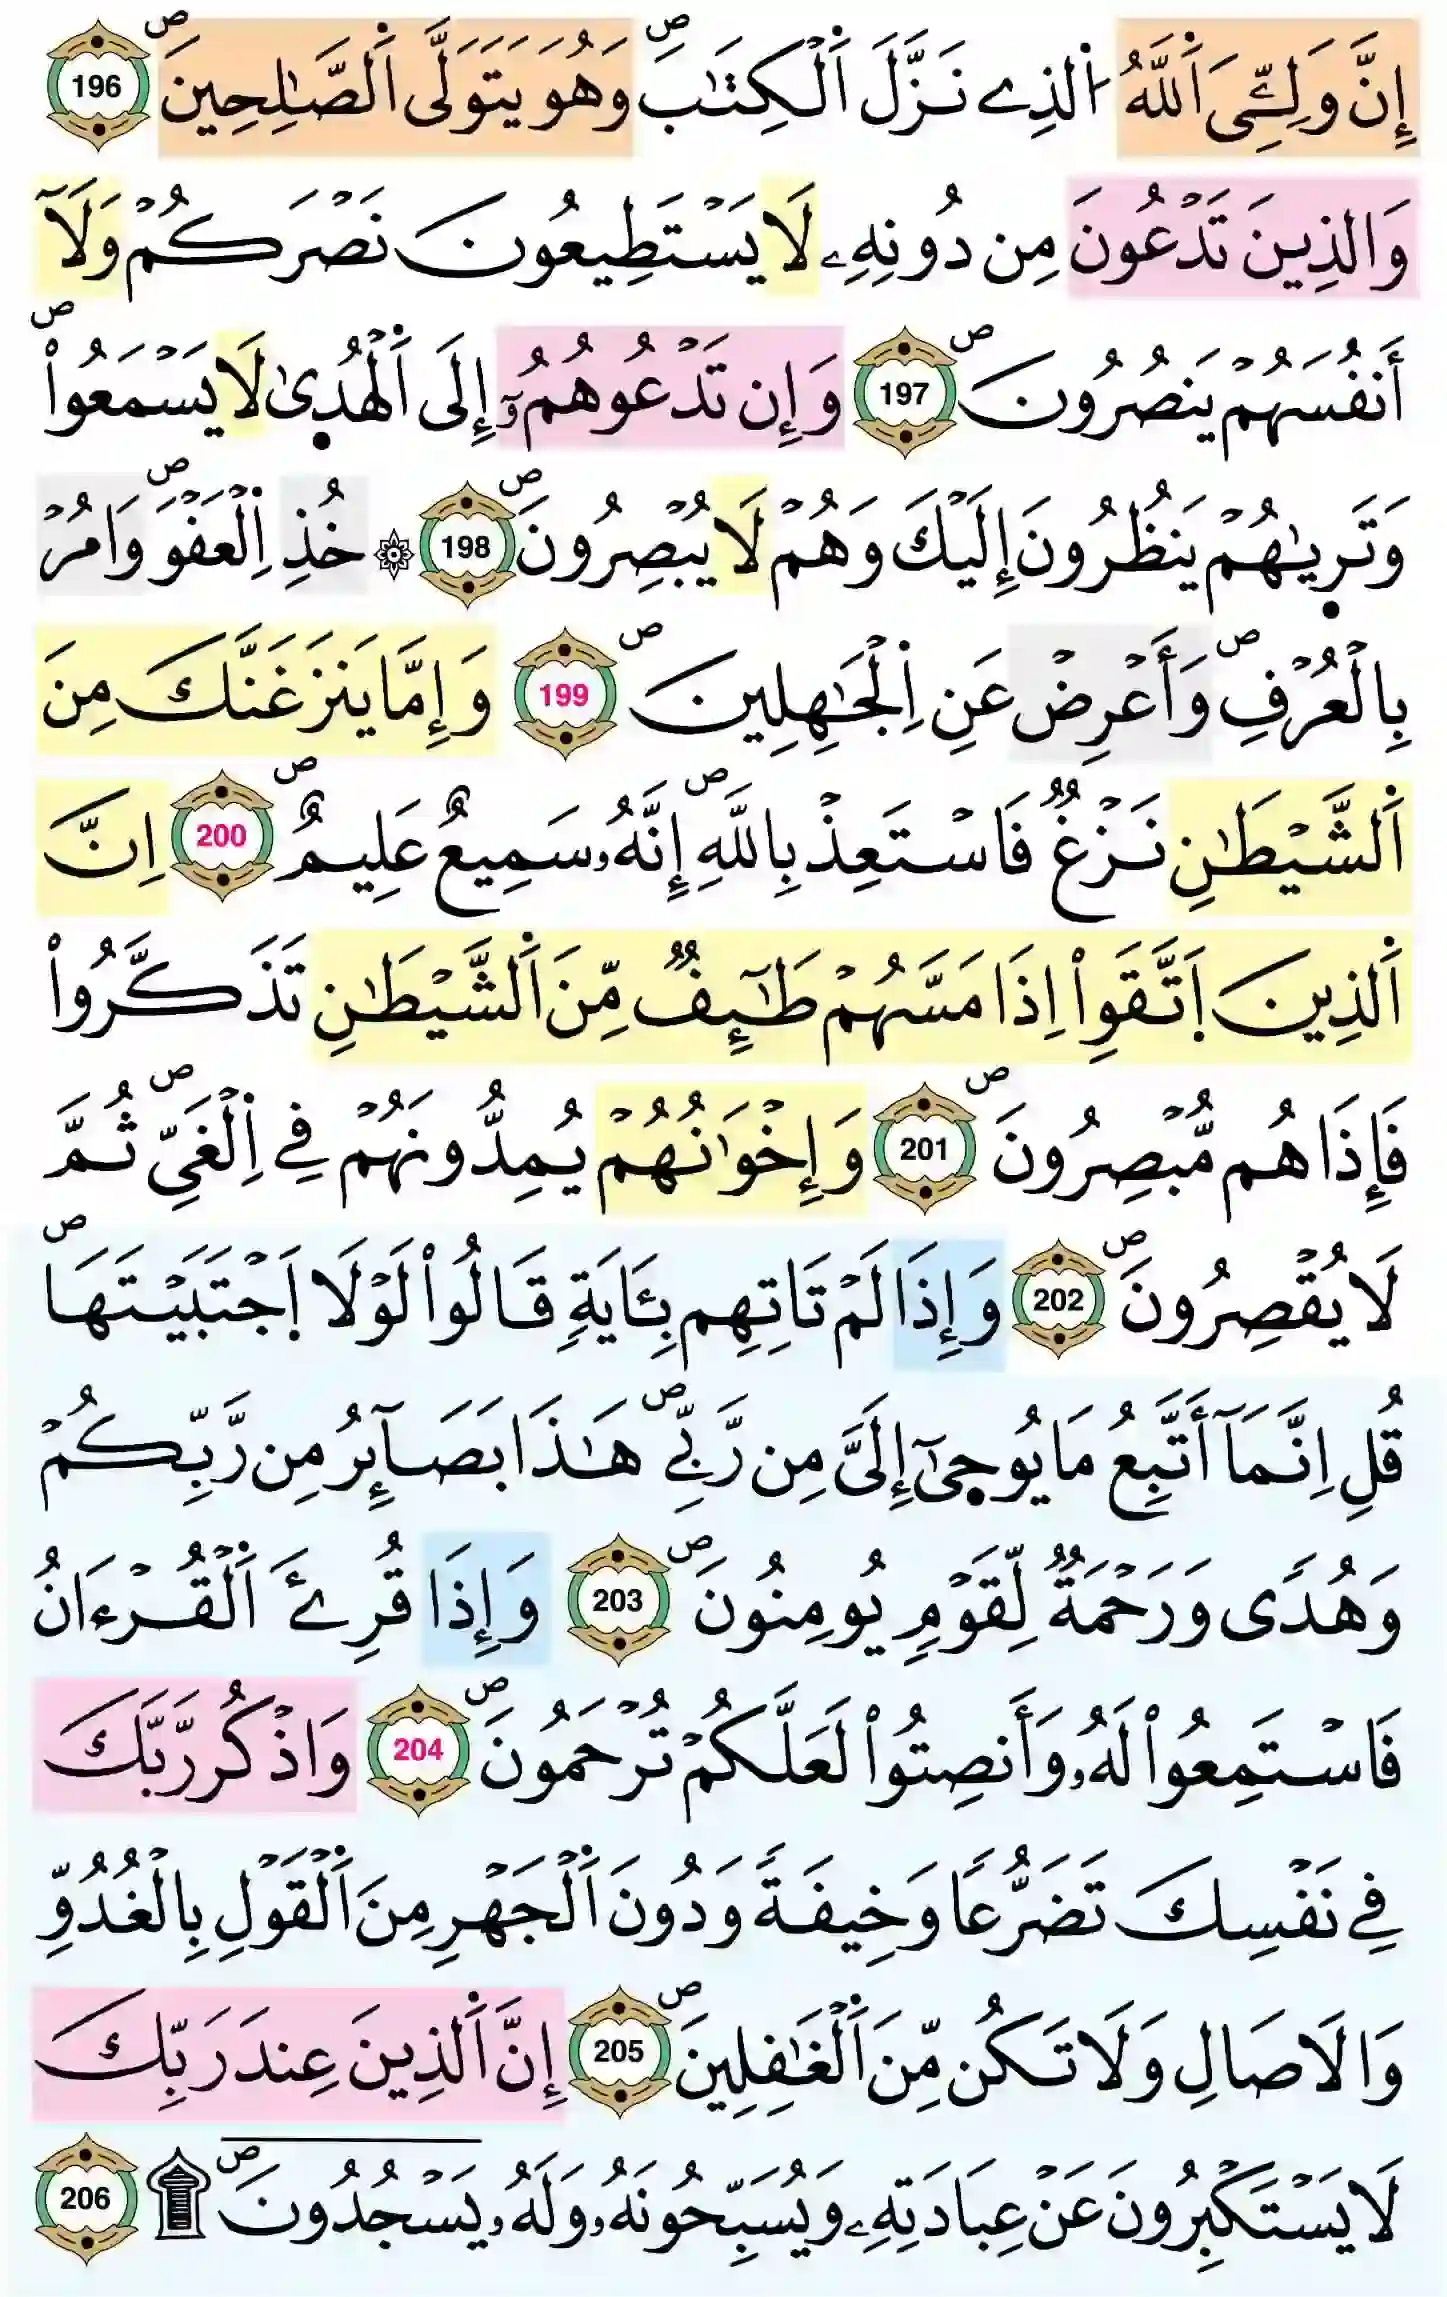 إِنَّ وَلِـِّۧىَ اَ۬للَّهُ اُ۬لذِے نَزَّلَ اَ۬لْكِتَٰبَۖ وَهُوَ يَتَوَلَّى اَ۬لصَّٰلِحِينَۖ 196
وَالذِينَ تَدْعُونَ مِن دُونِهِۦ لَا يَسْتَطِيعُونَ نَصْرَكُمْ وَلَآ
أَنفُسَهُمْ يَنصُرُونَۖ 197 وَإِن تَدْعُوهُمُۥٓ إِلَى اَ۬لْهُدۭىٰ لَا يَسْمَعُواْۖ
وَتَرۭىٰهُمْ يَنظُرُونَ إِلَيْكَ وَهُمْ لَا يُبْصِرُونَۖ 198 ۞ خُذِ اِ۬لْعَفْوَۖ وَامُرْ
بِالْعُرْفِۖ وَأَعْرِضْ عَنِ اِ۬لْجَٰهِلِينَۖ 199 وَإِمَّا يَنزَغَنَّكَ مِنَ
اَ۬لشَّيْطَٰنِ نَزْغٌ فَاسْتَعِذْ بِاللَّهِۖ إِنَّهُۥ سَمِيعٌ عَلِيمٌۖ 200 اِنَّ
اَ۬لذِينَ اَ۪تَّقَوِاْ اِذَا مَسَّهُمْ طَٰٓئِفٌ مِّنَ اَ۬لشَّيْطَٰنِ تَذَكَّرُواْ
فَإِذَا هُم مُّبْصِرُونَۖ 201 وَإِخْوَٰنُهُمْ يُمِدُّونَهُمْ فِے اِ۬لْغَيِّۖ ثُمَّ
لَا يُقْصِرُونَۖ 202 وَإِذَا لَمْ تَاتِهِم بِـَٔايَةٍ قَالُواْ لَوْلَا اَ۪جْتَبَيْتَهَاۖ
قُلِ اِنَّمَآ أَتَّبِعُ مَا يُوحۭىٰٓ إِلَىَّ مِن رَّبِّےۖ هَٰذَا بَصَآئِرُ مِن رَّبِّكُمْ
وَهُدًى وَرَحْمَةٌ لِّقَوْمٍ يُومِنُونَۖ 203 وَإِذَا قُرِۓَ اَ۬لْقُرْءَانُ
فَاسْتَمِعُواْ لَهُۥ وَأَنصِتُواْ لَعَلَّكُمْ تُرْحَمُونَۖ 204 وَاذْكُر رَّبَّكَ
فِے نَفْسِكَ تَضَرُّعًا وَخِيفَةً وَدُونَ اَ۬لْجَهْرِ مِنَ اَ۬لْقَوْلِ بِالْغُدُوِّ
وَالَاصَالِ وَلَا تَكُن مِّنَ اَ۬لْغَٰفِلِينَۖ 205 إِنَّ اَ۬لذِينَ عِندَ رَبِّكَ
لَا يَسْتَكْبِرُونَ عَنْ عِبَادَتِهِۦ وَيُسَبِّحُونَهُۥ وَلَهُۥ يَسْجُدُونَۖ ۩ 206